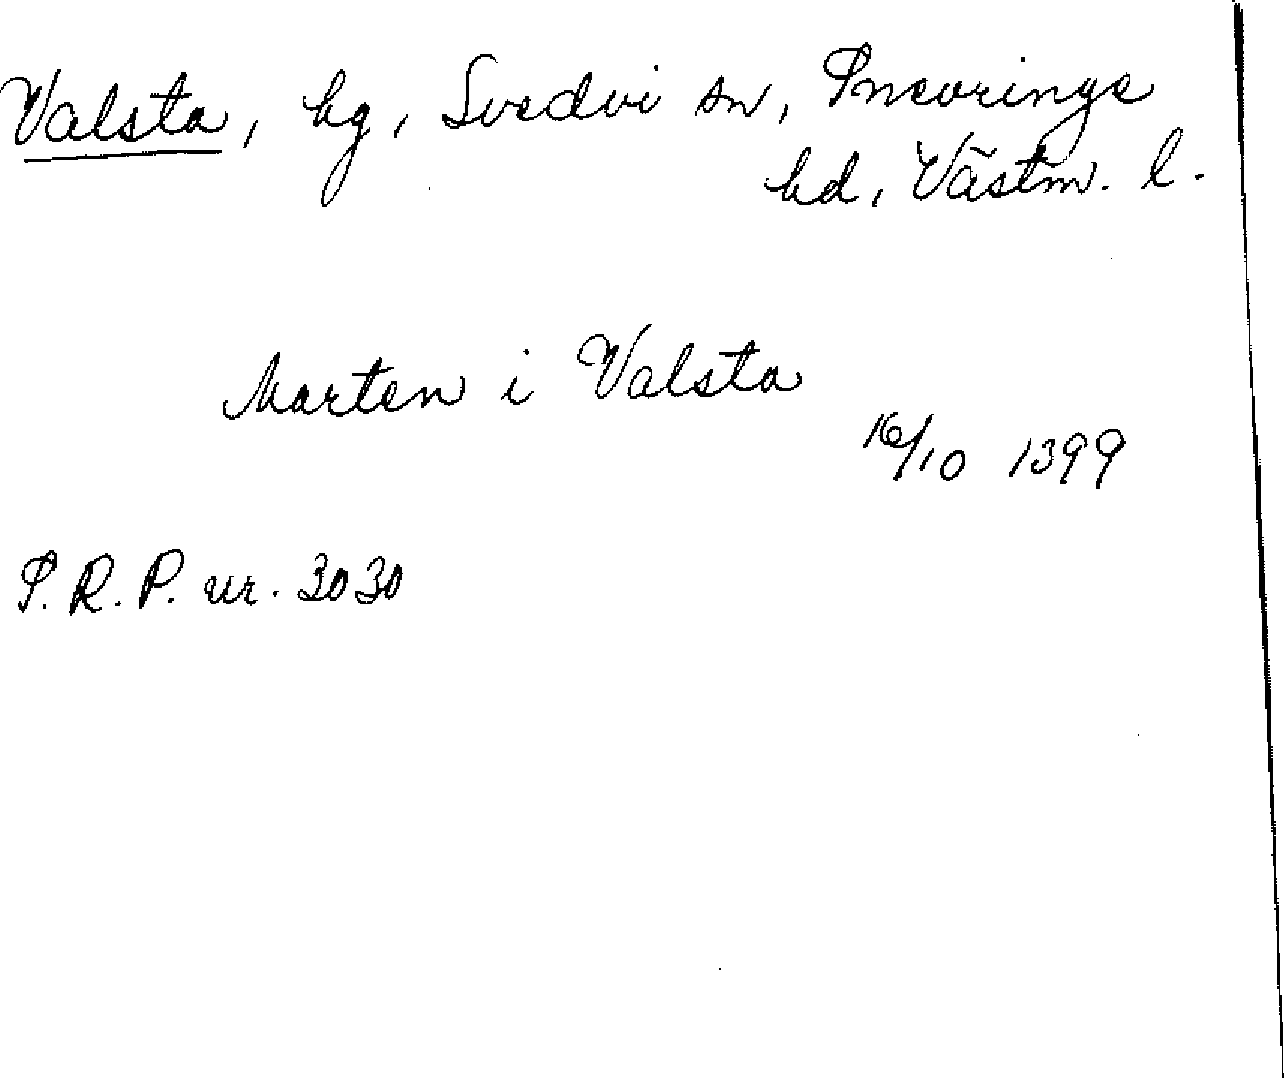 Valsta, by, Svedvi sn, Snevringe
hd, Västm. l.
Marten i Valsta
16/10 1399
S.R.P. nr. 3030